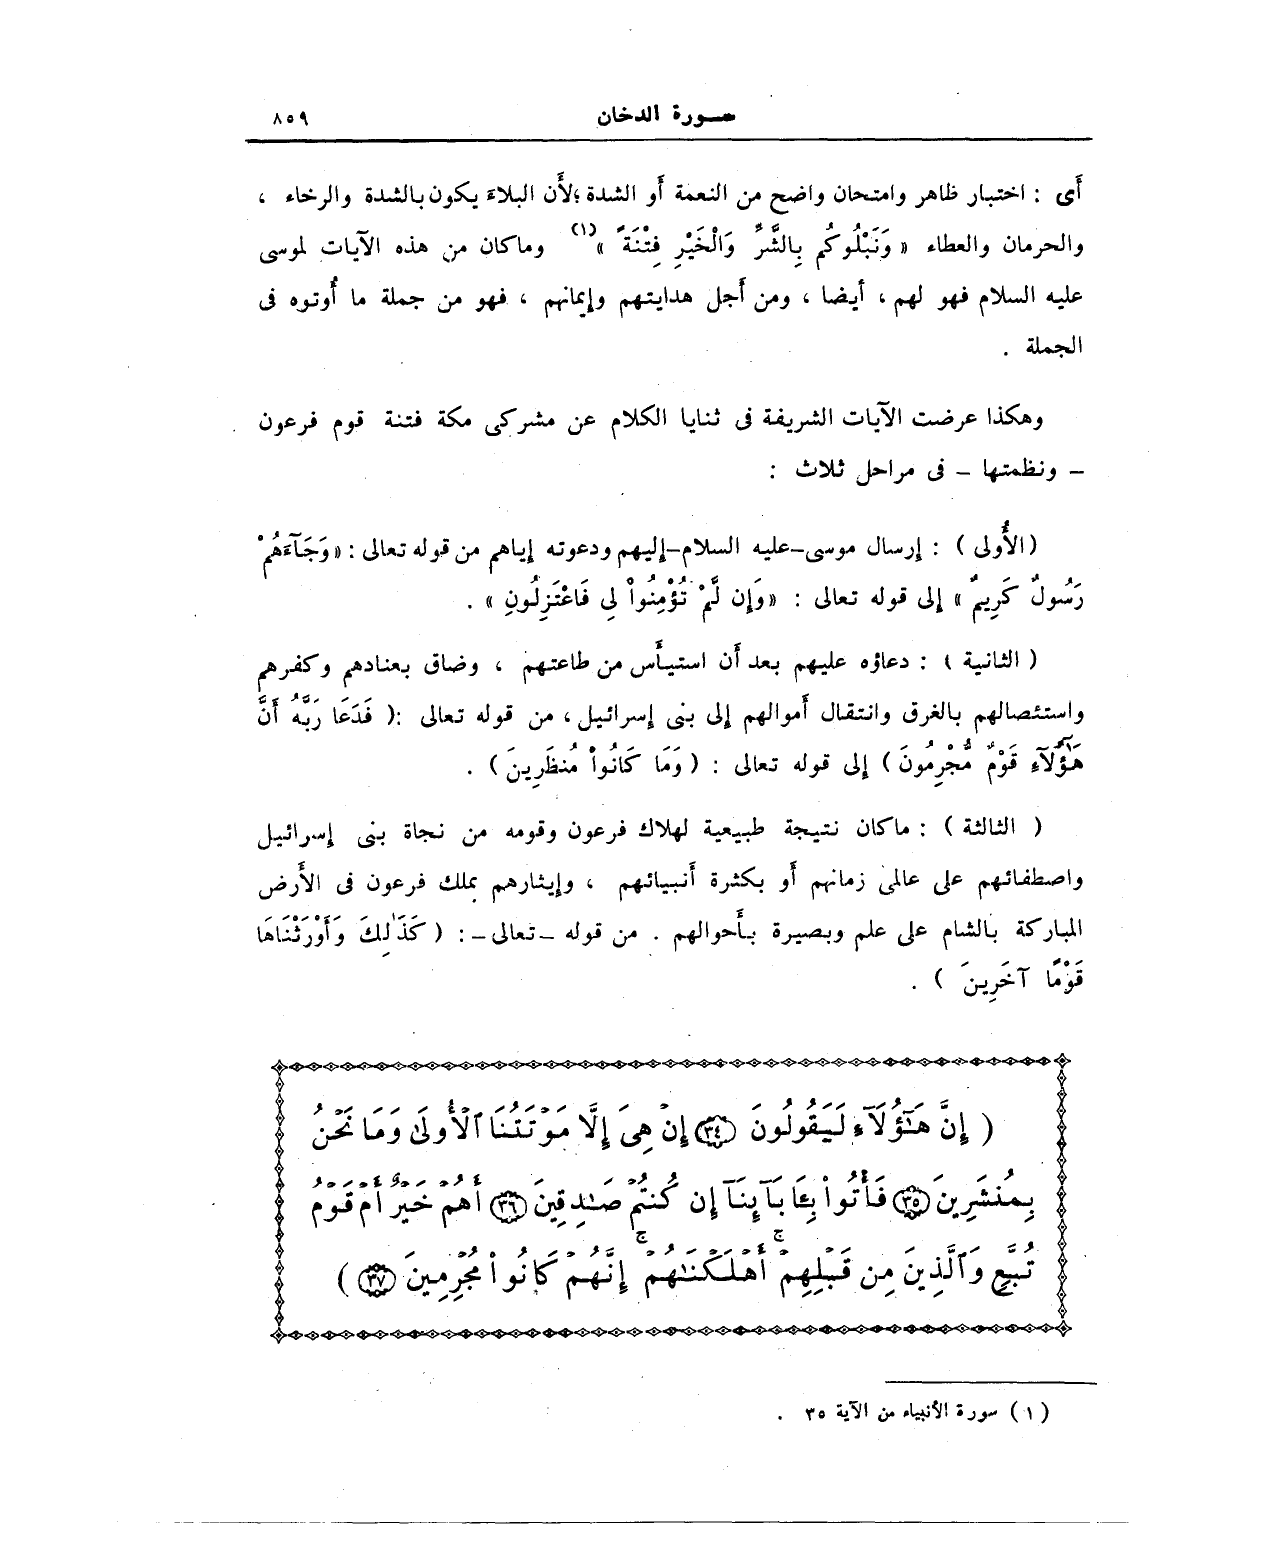 سورة الدخان ٨٥٩
أَى : اختبار ظاهر وامتحان واضح من النعمة أَو الشدة ؛لأَن البلاءَ يكون بالشدة والرخاء ،
والحرمان والعطاء « وَنَبْلُوكُم بِالشَّرِّ وَالْخَيْرِ فِتْنَةً »(١) وماكان من هذه الآيات لموسى
عليه السلام فهو لهم ، أيضا ، ومن أَجل هدايتهم وإيمانهم ، فهو من جملة ما أُوتوه فى
الجملة .
وهكذا عرضت الآيات الشريفة فى ثنايا الكلام عن مشركى مكة فتنة قوم فرعون
– ونظمتها – فى مراحل ثلاث :
(الأُولى ) : إرسال موسى–عليه السلام–إليهم ودعوته إياهم من قوله تعالى : «وَجَآءَهُمْ
رَسُولٌ كَرِيمٌ » إلى قوله تعالى : «وَإِن لَّمْ تُؤْمِنُواْ لِى فَاعْتَزِلُونِ » .
( الثانية ) : دعاؤه عليهم بعد أَن استيأَس من طاعتهم ، وضاق بعنادهم وكفرهم
واستئصالهم بالغرق وانتقال أَموالهم إلى بنى إسرائيل ، من قوله تعالى :( فَدَعَا رَبَّهُ أَنَّ
هَٰٓؤُلَآءِ قَوْمٌ مُّجْرِمُونَ ) إلى قوله تعالى : ( وَمَا كَانُواْ مُنظَرِينَ ) .
( الثالثة ) : ماكان نتيجة طبيعية لهلاك فرعون وقومه من نجاة بنى إسرائيل
واصطفائهم على عالمى زمانهم أَو بكثرة أَنبيائهم ، وإيثارهم بملك فرعون فى الأَرض
المباركة بالشام على علم وبصيرة بأَحوالهم . من قوله –تعالى– : ( كَذَٰلِكَ وَأَوْرَثْنَاهَا
قَوْمًا آخَرِينَ ) .
( إِنَّ هَٰٓؤُلَآءِ لَيَقُولُونَ ٣٤ إِنْ هِىَ إِلَّا مَوْتَتُنَا ٱلْأُولَىٰ وَمَا نَحْنُ
بِمُنشَرِينَ ٣٥ فَأْتُواْ بِـَٔابَآئِنَآ إِن كُنتُمْ صَٰدِقِينَ ٣٦ أَهُمْ خَيْرٌ أَمْ قَوْمُ
تُبَّعٍ وَٱلَّذِينَ مِن قَبْلِهِمْ ۚ أَهْلَكْنَٰهُمْ ۚ إِنَّهُمْ كَانُواْ مُجْرِمِينَ ٣٧ )
(١) سورة الأنبياء من الآية ٣٥ .